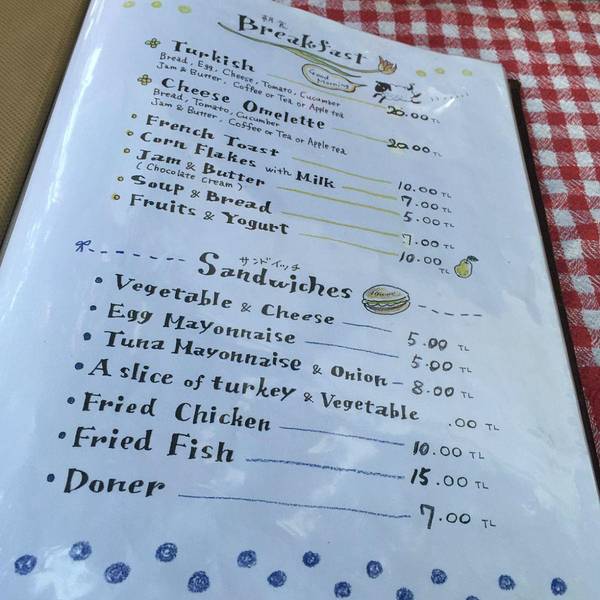 朝食
Breakfast
Good Morning
Turkish 20.00 TL
Bread, Egg, Cheese, Tomato, Cucumber
Jam & Butter. Coffee or Tea or Apple tea
Cheese Omelette 20.00 TL
Bread, Tomato, Cucumber
Jam & Butter. Coffee or Tea or Apple tea
French Toast 10.00 TL
Corn Flakes with Milk 7.00 TL
Jam & Butter 5.00 TL
(Chocolate Cream)
Soup & Bread 7.00 TL
Fruits & Yogurt 10.00 TL
サンドイッチ
Sandwiches
Vegetable & Cheese 5.00 TL
Egg Mayonnaise 5.00 TL
Tuna Mayonnaise & Onion - 8.00 TL
A slice of turkey & Vegetable .00 TL
Fried Chicken 10.00 TL
Fried Fish 15.00 TL
Doner 7.00 TL